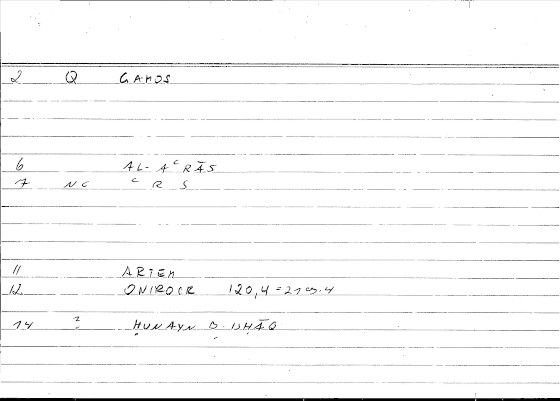 2 Q GAMOS
6 AL-AᶜRĀS
7 NC ᶜRS
11 ARTEM
12 ONIROCR 120,4 =
14 ? ḤUNAYN B. ISḤĀQ